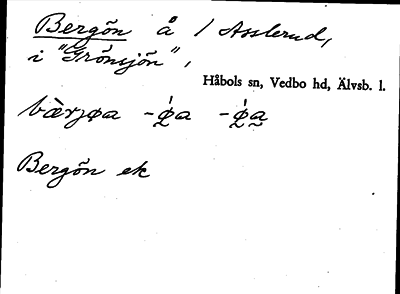 Bergön å / Asslerud,
i "Grönsjön",
Håbols sn, Vedbo hd, Älvsb. l.
Bergön ek